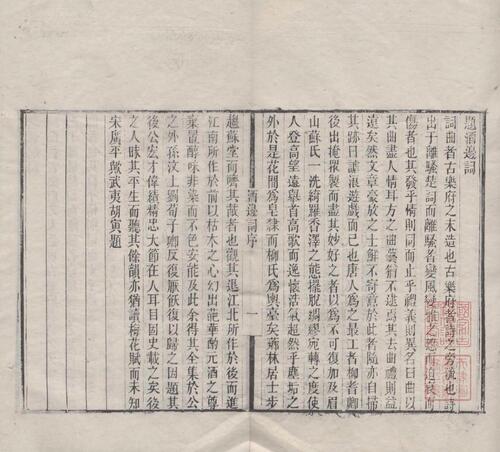 題酒邊詞
詞曲者古樂府之末造也古樂府者詩之旁流也詩
出于離騷楚詞而離騷者變風變雅之怨而迫哀而
傷者也其發乎情則同而止乎禮義則異名曰曲以
其曲盡人情耳方之曲藝猶不逮焉其去曲禮則益
遠矣然文章豪放之士鮮不寄意於此者隨亦自掃
其跡曰謔浪遊戲而已也唐人為之最工者柳耆卿
後出掩眾製而盡其妙好之者以為不可復加及眉
山蘇氏一洗綺羅香澤之態擺脫綢繆宛轉之度使
人登高望遠舉首高歌而逸懷浩氣超然乎塵垢之
外於是花間為皁隸而柳氏為輿臺矣薌林居士步
酒邊詞序
一
趨蘇堂而嚌其胾者也觀其退江北所作於後而進
江南所作於前以枯木之心幻出葩華酌元酒之尊
棄置醇味非染而不色安能及此余得其全集於公
之外孫汶上劉荀子卿反復厭飫復以歸之因題其
後公宏才偉績精忠大節在人耳目固史載之矣後
之人昧其平生而聽其餘韻亦猶讀梅花賦而未知
宋廣平歟武夷胡寅題